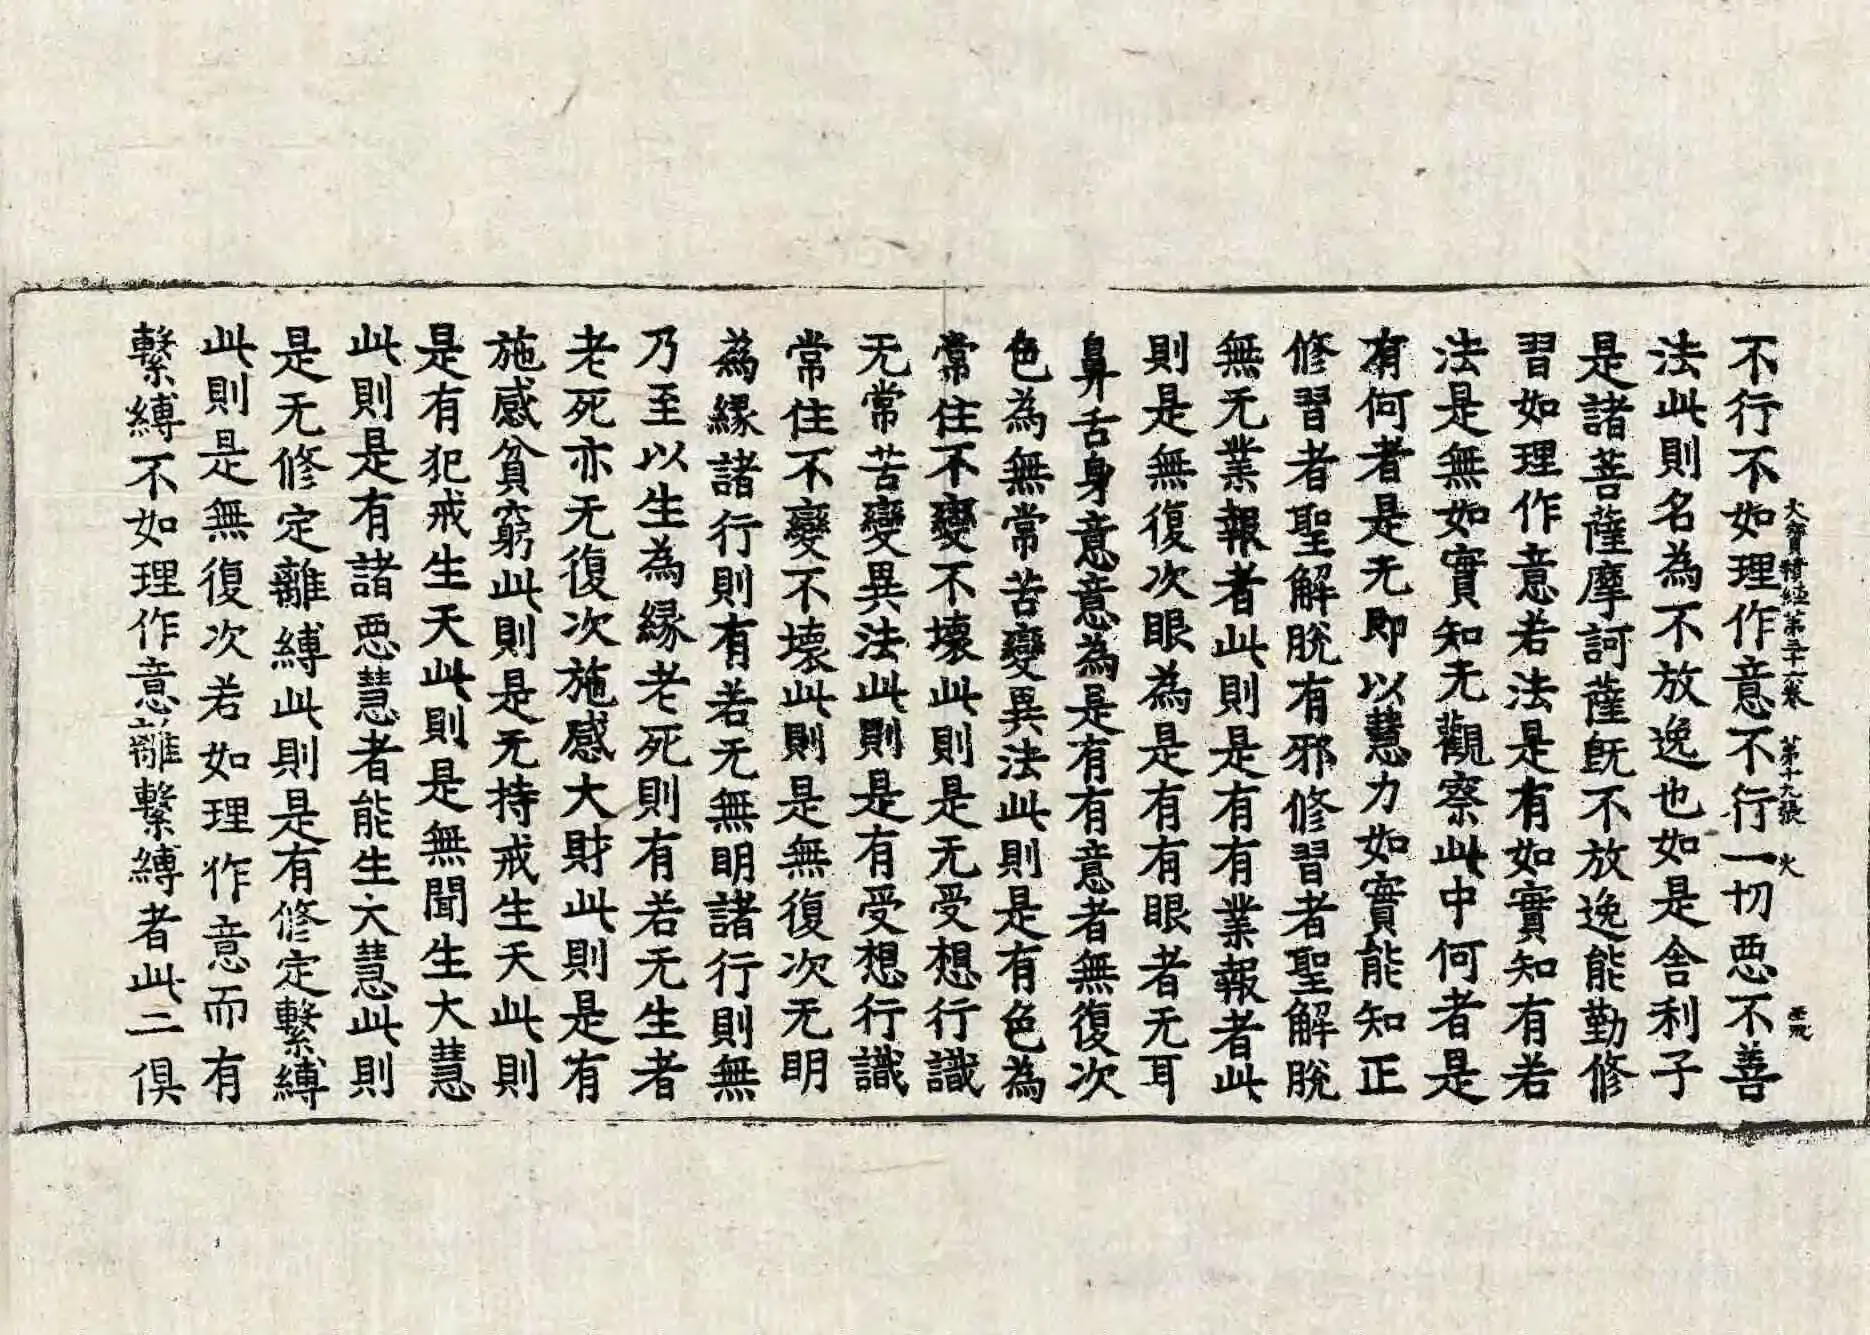 大寶積經第三十六卷 第十九張 火
不行不如理作意不行一切惡不善
法此則名為不放逸也如是舍利子
是諸菩薩摩訶薩既不放逸能勤修
習如理作意若法是有如實知有若
法是無如實知无觀察此中何者是
有何者是无即以慧力如實能知正
修習者聖解脫有邪修習者聖解脫
無无業報者此則是有有業報者此
則是無復次眼為是有有眼者无耳
鼻舌身意意為是有有意者無復次
色為無常苦變異法此則是有色為
常住不變不壞此則是无受想行識
无常苦變異法此則是有受想行識
常住不變不壞此則是無復次无明
為緣諸行則有若无無明諸行則無
乃至以生為緣老死則有若无生者
老死亦无復次施感大財此則是有
施感貧窮此則是无持戒生天此則
是有犯戒生天此則是無聞生大慧
此則是有諸惡慧者能生大慧此則
是无修定離縛此則是有修定繫縛
此則是無復次若如理作意而有
繫縛不如理作意離繫縛者此二俱